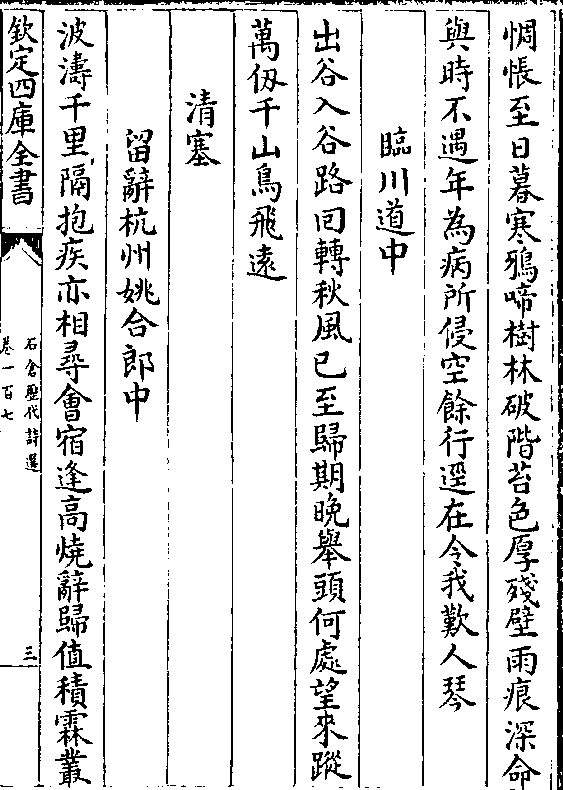 惆悵至日暮寒鴉啼樹林破階苔色厚殘壁雨痕深命
與時不遇年為病所侵空餘行逕在令我歎人琴
臨川道中
出谷入谷路回轉秋風已至歸期晚舉頭何處望來蹤
萬仭千山鳥飛遠
清塞
留辭杭州姚合郎中
波濤千里隔抱疾亦相尋會宿逢高燒辭歸值積霖叢
欽定四庫全書
石倉歷代詩選
卷一百七
三